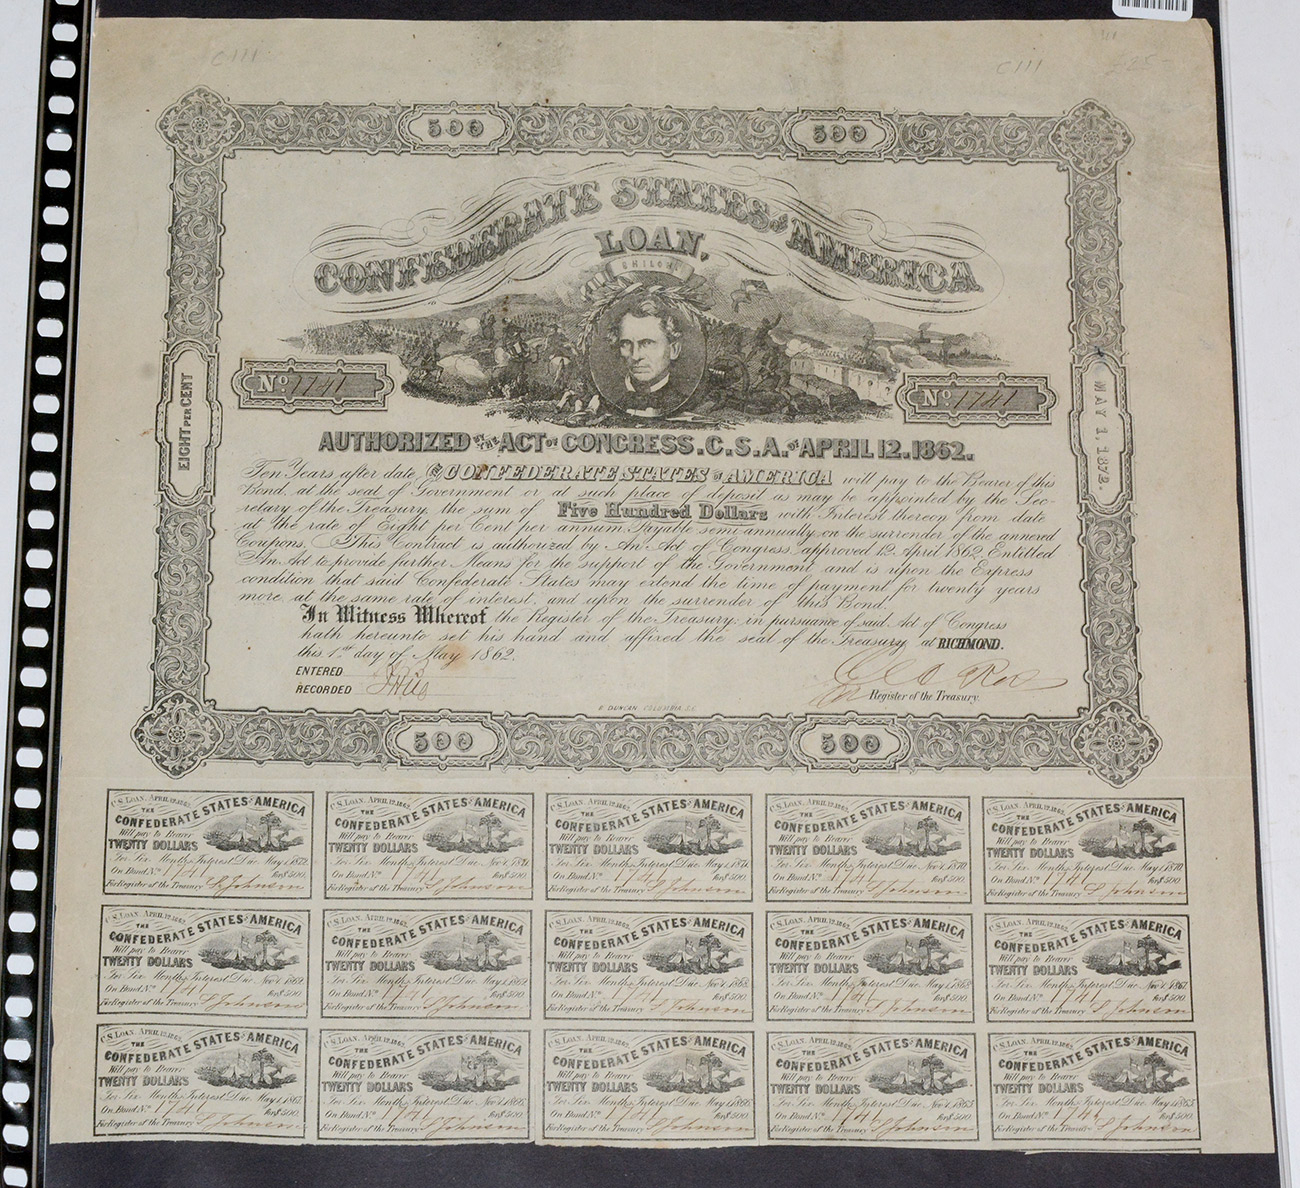 C111
C111
£25-
500
500
CONFEDERATE STATES OF AMERICA
LOAN,
SHILOH
No. 1741
No. 1741
EIGHT PER CENT
MAY 1, 1872.
AUTHORIZED BY THE ACT OF CONGRESS. C. S. A. OF APRIL 12. 1862.
Ten Years after date, THE CONFEDERATE STATES OF AMERICA will pay to the Bearer of this
Bond, at the seat of Government or at such place of deposit as may be appointed by the Sec-
retary of the Treasury, the sum of Five Hundred Dollars with Interest thereon from date
at the rate of Eight per Cent per annum, Payable semi-annually on the surrender of the annexed
Coupons. This Contract is authorized by An Act of Congress approved 12 April 1862, Entitled
An Act to provide further Means for the support of the Government and is upon the Express
condition that said Confederate States may extend the time of payment for twenty years
more, at the same rate of interest, and upon the surrender of this Bond.
In Witness Whereof the Register of the Treasury; in pursuance of said Act of Congress
hath hereunto set his hand and affixed the seal of the Treasury at RICHMOND.
this 1st day of May 1862.
ENTERED
RECORDED
Register of the Treasury.
E. DUNCAN. COLUMBIA, S.C.
500
500
C.S. LOAN, APRIL 12, 1862.
THE
CONFEDERATE STATES OF AMERICA
Will pay to Bearer
TWENTY DOLLARS
For Six Months Interest Due May 1, 1872.
On Bond No. 1741 for $500.
For Register of the Treasury S Johnson
C.S. LOAN, APRIL 12, 1862.
THE
CONFEDERATE STATES OF AMERICA
Will pay to Bearer
TWENTY DOLLARS
For Six Months Interest Due Nov. 1, 1871.
On Bond No. 1741 for $500.
For Register of the Treasury S Johnson
C.S. LOAN, APRIL 12, 1862.
THE
CONFEDERATE STATES OF AMERICA
Will pay to Bearer
TWENTY DOLLARS
For Six Months Interest Due May 1, 1871.
On Bond No. 1741 for $500.
For Register of the Treasury S Johnson
C.S. LOAN, APRIL 12, 1862.
THE
CONFEDERATE STATES OF AMERICA
Will pay to Bearer
TWENTY DOLLARS
For Six Months Interest Due Nov. 1, 1870.
On Bond No. 1741 for $500.
For Register of the Treasury S Johnson
C.S. LOAN, APRIL 12, 1862.
THE
CONFEDERATE STATES OF AMERICA
Will pay to Bearer
TWENTY DOLLARS
For Six Months Interest Due May 1, 1870.
On Bond No. 1741 for $500.
For Register of the Treasury S Johnson
C.S. LOAN, APRIL 12, 1862.
THE
CONFEDERATE STATES OF AMERICA
Will pay to Bearer
TWENTY DOLLARS
For Six Months Interest Due Nov. 1, 1869.
On Bond No. 1741 for $500.
For Register of the Treasury S Johnson
C.S. LOAN, APRIL 12, 1862.
THE
CONFEDERATE STATES OF AMERICA
Will pay to Bearer
TWENTY DOLLARS
For Six Months Interest Due May 1, 1869.
On Bond No. 1741 for $500.
For Register of the Treasury S Johnson
C.S. LOAN, APRIL 12, 1862.
THE
CONFEDERATE STATES OF AMERICA
Will pay to Bearer
TWENTY DOLLARS
For Six Months Interest Due Nov. 1, 1868.
On Bond No. 1741 for $500.
For Register of the Treasury S Johnson
C.S. LOAN, APRIL 12, 1862.
THE
CONFEDERATE STATES OF AMERICA
Will pay to Bearer
TWENTY DOLLARS
For Six Months Interest Due May 1, 1868.
On Bond No. 1741 for $500.
For Register of the Treasury S Johnson
C.S. LOAN, APRIL 12, 1862.
THE
CONFEDERATE STATES OF AMERICA
Will pay to Bearer
TWENTY DOLLARS
For Six Months Interest Due Nov. 1, 1867.
On Bond No. 1741 for $500.
For Register of the Treasury S Johnson
C.S. LOAN, APRIL 12, 1862.
THE
CONFEDERATE STATES OF AMERICA
Will pay to Bearer
TWENTY DOLLARS
For Six Months Interest Due May 1, 1867.
On Bond No. 1741 for $500.
For Register of the Treasury S Johnson
C.S. LOAN, APRIL 12, 1862.
THE
CONFEDERATE STATES OF AMERICA
Will pay to Bearer
TWENTY DOLLARS
For Six Months Interest Due Nov. 1, 1866.
On Bond No. 1741 for $500.
For Register of the Treasury S Johnson
C.S. LOAN, APRIL 12, 1862.
THE
CONFEDERATE STATES OF AMERICA
Will pay to Bearer
TWENTY DOLLARS
For Six Months Interest Due May 1, 1866.
On Bond No. 1741 for $500.
For Register of the Treasury S Johnson
C.S. LOAN, APRIL 12, 1862.
THE
CONFEDERATE STATES OF AMERICA
Will pay to Bearer
TWENTY DOLLARS
For Six Months Interest Due Nov. 1, 1865.
On Bond No. 1741 for $500.
For Register of the Treasury S Johnson
C.S. LOAN, APRIL 12, 1862.
THE
CONFEDERATE STATES OF AMERICA
Will pay to Bearer
TWENTY DOLLARS
For Six Months Interest Due May 1, 1865.
On Bond No. 1741 for $500.
For Register of the Treasury S Johnson